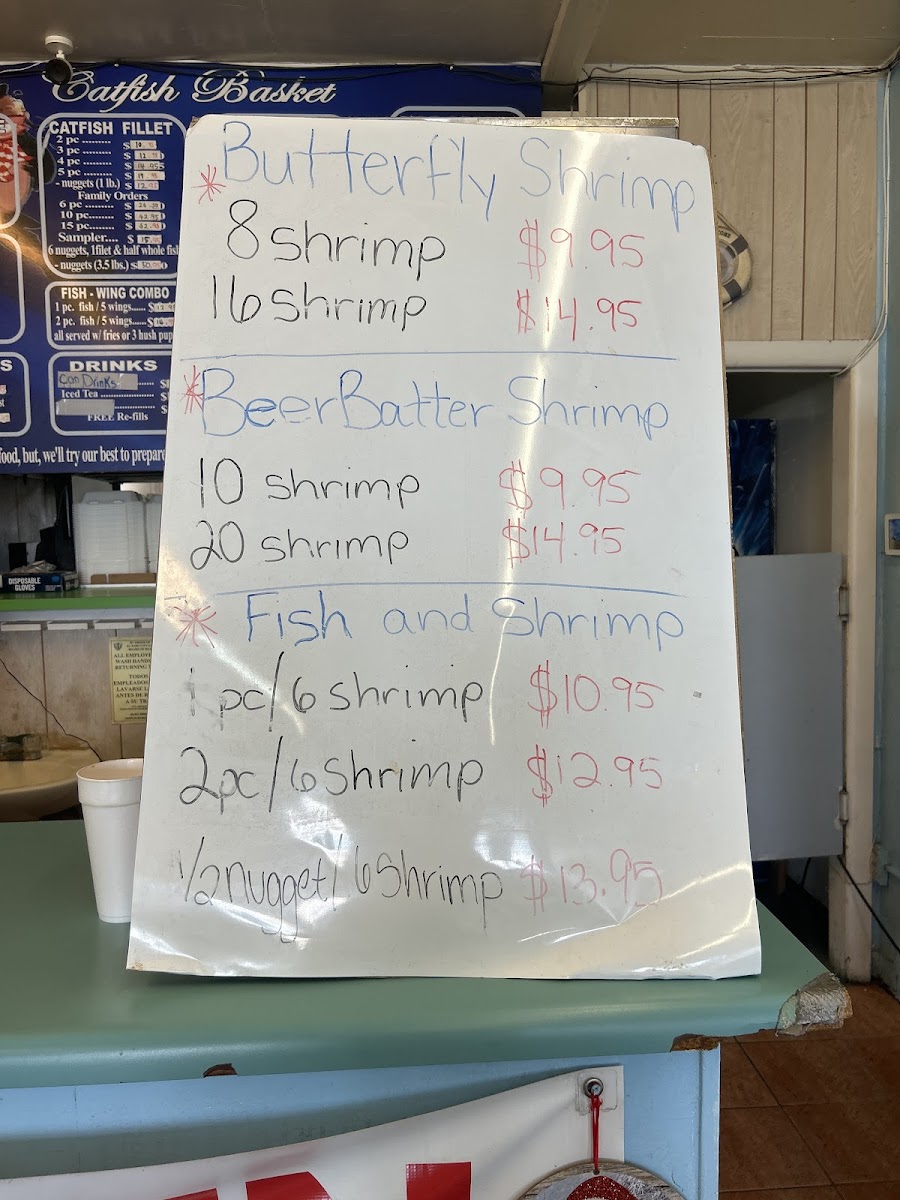 Catfish Basket
CATFISH FILLET
2 pc ......... $
3 pc ......... $
4 pc ......... $
5 pc ......... $
- nuggets (1 lb.) $
Family Orders
6 pc ........ $
10 pc........ $
15 pc........ $
Sampler.... $
6 nuggets, 1filet & half whole fish
- nuggets (3.5 lbs.) $
FISH - WING COMBO
1 pc. fish / 5 wings...... $
2 pc. fish / 5 wings...... $
all served w/ fries or 3 hush pup
DRINKS
Can Drinks
Iced Tea
FREE Re-fills
food, but, we'll try our best to prepare
*Butterfly Shrimp
8 shrimp $9.95
16 shrimp $14.95
*BeerBatter Shrimp
10 shrimp $9.95
20 shrimp $14.95
* Fish and Shrimp
1 pc/6 shrimp $10.95
2pc/6 Shrimp $12.95
1/2 nugget/ 6 Shrimp $13.95
DISPOSABLE
GLOVES
ALL EMPLOYE
WASH HAND
RETURNING
TODOS
EMPLEADOS
LAVARSE L
ANTES DE R
A SU TR